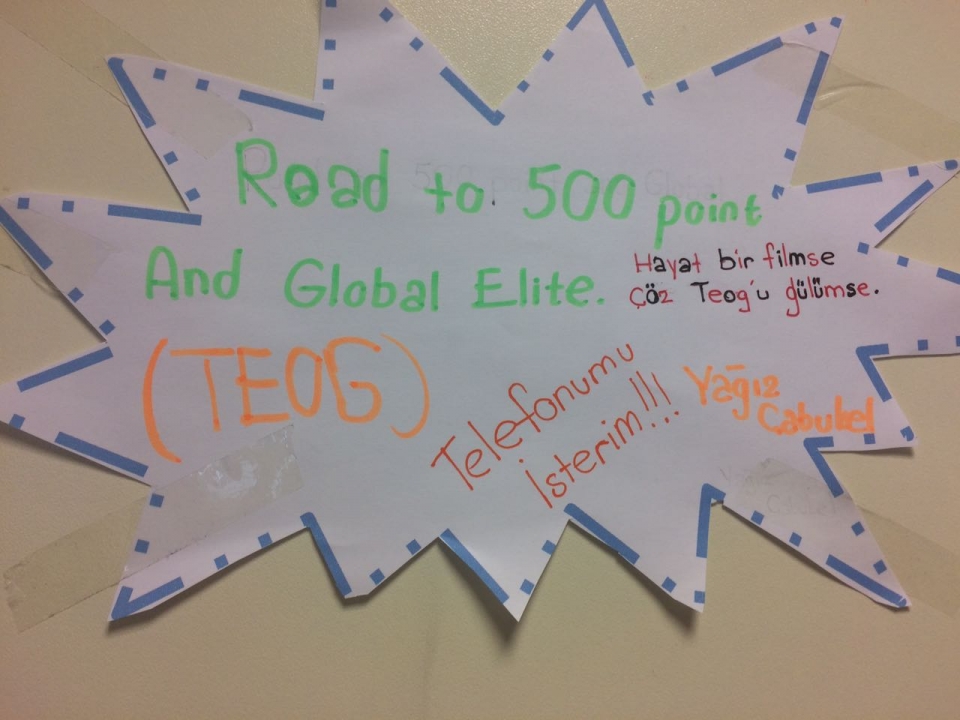 Road to 500 point
And Global Elite.
Hayat bir filmse
Çöz Teog'u gülümse.
(TEOG)
Telefonumu
İsterim!!!
Yağız
Cabukel